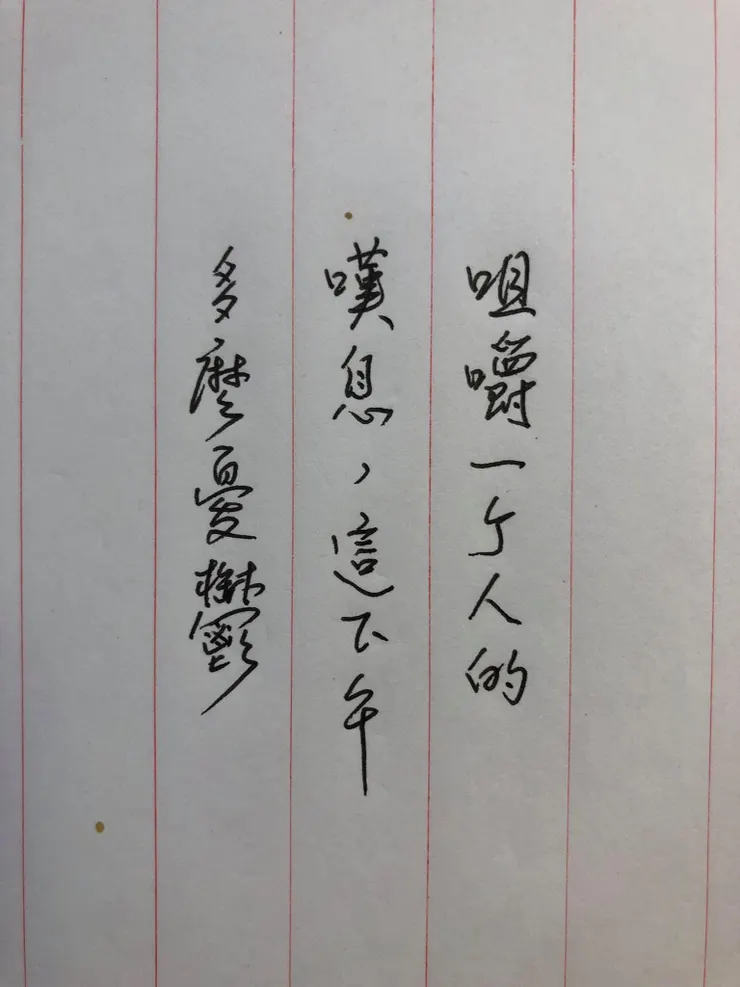 咀嚼一个人的
嘆息，這下午
多麼憂鬱